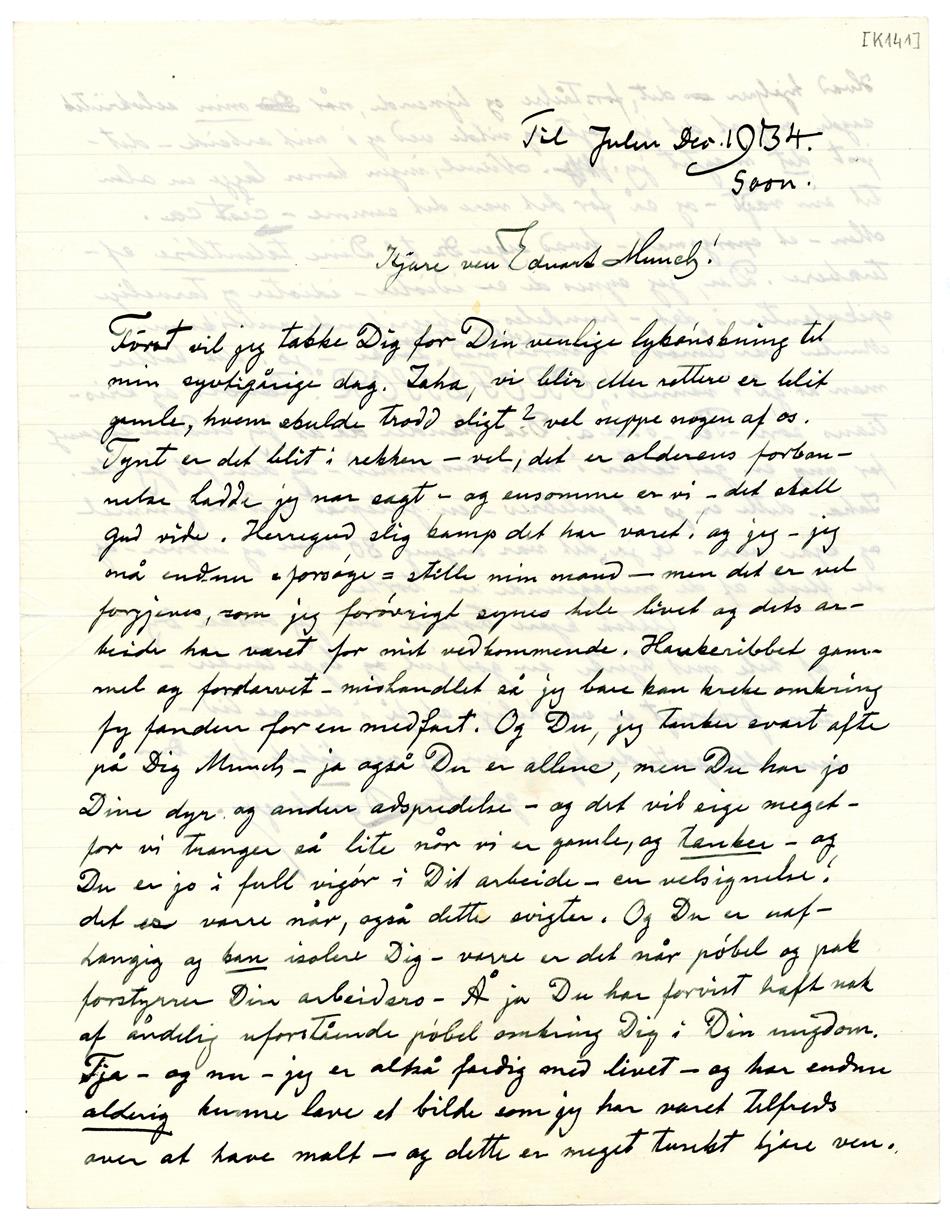 [K141]
Til Julen Dec. 1934.
Soon.
Kjære ven Edvart Munch!
Først vil jeg takke Dig for Din venlige lykønskning til
min syvtigårige dag. Jaha, vi blir eller rettere er blit
gamle, hvem skulde trodd sligt? vel neppe nogen af os.
Tynt er det blit i rekken – vel, det er alderens forban–
nelse hadde jeg nær sagt – og ensomme er vi – det skall
gud vide. Herregud slig kamp det har været! og jeg – jeg
må endnu forsøge = stille min mand – men det er vel
forgjeves, som jeg forøvrigt synes hele livet og dets ar–
beide har været for mit vedkommende. Haukeribbet gam–
mel og fordærvet – mishandlet så jeg bare kan kreke omkring
fy fanden for en medfart. Og Du, jeg tænker svært ofte
på Dig Munch – ja også Du er allene, men Du har jo
Dine dyr og anden adspredelse – og det vil sige meget –
for vi trænger så lite når vi er gamle, og tænker – og
Du er jo i full vigør i Dit arbeide – en velsignelse!
det er værre når, også dette svigter. Og Du er uaf–
hængig og kan isolere Dig – værre er det når pøbel og pak
forstyrrer Din arbeidsro – Å ja Du har forvist haft nok
af åndelig uforstående pøbel omkring Dig i Din ungdom.
Tja – og nu – jeg er altså færdig med livet – og har endnu
alderig kunne lave et bilde som jeg har været tilfreds
over at have malt – og dette er meget tungt kjære ven.